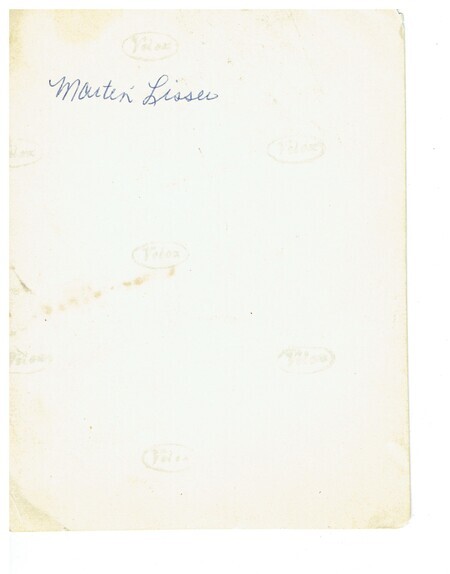 Velox
Martin Lisser
Velox
Velox
Velox
Velox
Velox
Velox